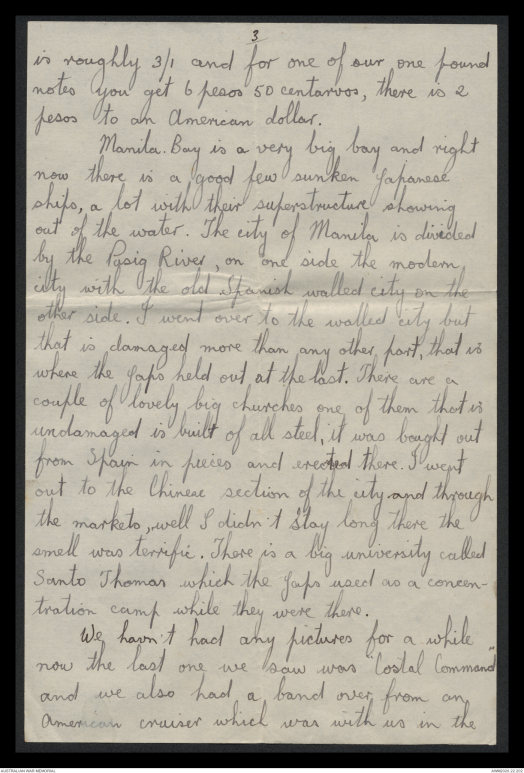 3
is roughly 3/1 and for one of our one pound
notes you get 6 pesos 50 centarvos, there is 2
pesos to an American dollar.
Manila Bay is a very big bay and right
now there is a good few sunken Japanese
ships, a lot with their superstructure showing
out of the water. The city of Manila is divided
by the Pasig River, on one side the modern
city with the old Spanish walled city on the
other side. I went over to the walled city but
that is damaged more than any other part, that is
where the Japs held out at the last. There are a
couple of lovely big churches one of them that is
undamaged is built of all steel, it was bought out
from Spain in pieces and erected there. I went
out to the Chinese section of the city and through
the markets, well I didn't stay long there the
smell was terrific. There is a big university called
Santo Thomas which the Japs used as a concen-
tration camp while they were there.
We havn't had any pictures for a while
now the last one we saw was "Costal Command"
and we also had a band over from an
American cruiser which was with us in the
AUSTRALIAN WAR MEMORIAL